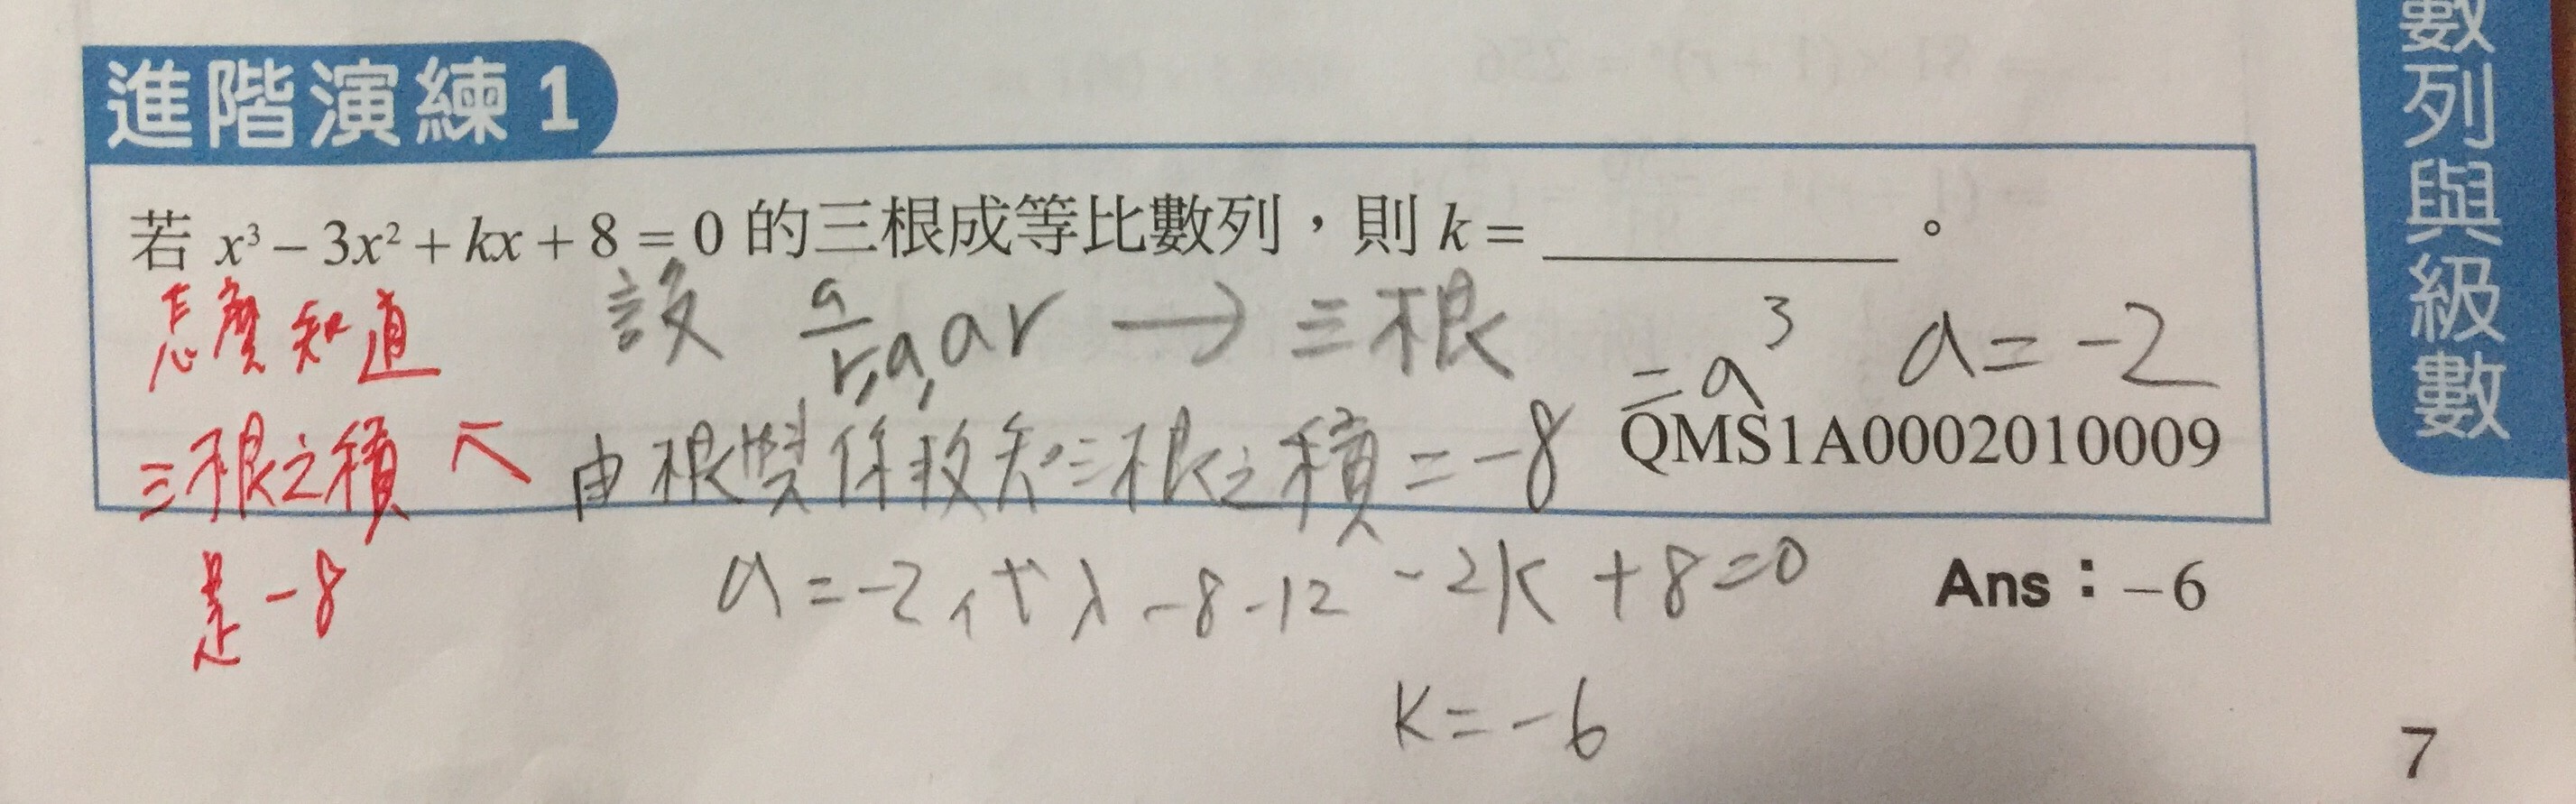 進階演練 1
若 x³ – 3x² + kx + 8 = 0 的三根成等比數列，則 k = ________ 。
設 a/r, a, ar → 三根
由根與係數知三根之積 = -8 = a³ a = -2
QMS1A0002010009
a = -2 代入 -8 -12 -2k + 8 = 0
k = -6
Ans：–6
怎麼知道
三根之積
是 -8
數列與級數
7